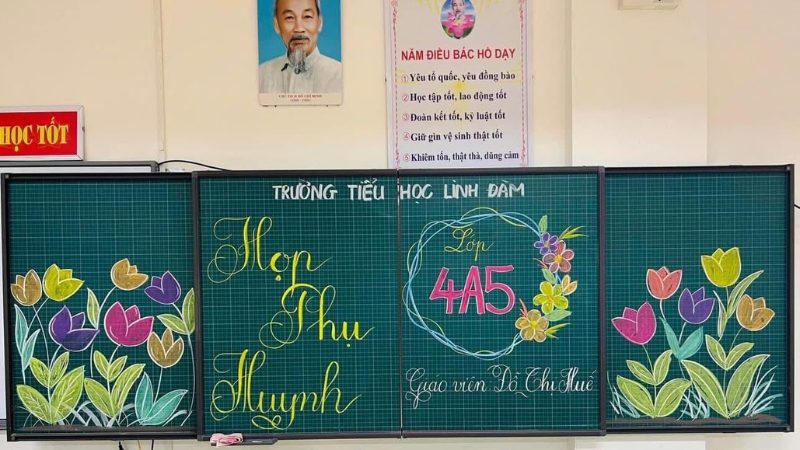 NĂM ĐIỀU BÁC HỒ DẠY
① Yêu tổ quốc, yêu đồng bào
② Học tập tốt, lao động tốt
③ Đoàn kết tốt, kỷ luật tốt
④ Giữ gìn vệ sinh thật tốt
⑤ Khiêm tốn, thật thà, dũng cảm
CHỦ TỊCH HỒ CHÍ MINH
HỌC TỐT
TRƯỜNG TIỂU HỌC LINH ĐÀM
Họp
Phụ
Huynh
Lớp
4A5
Giáo viên Đỗ Thị Huế